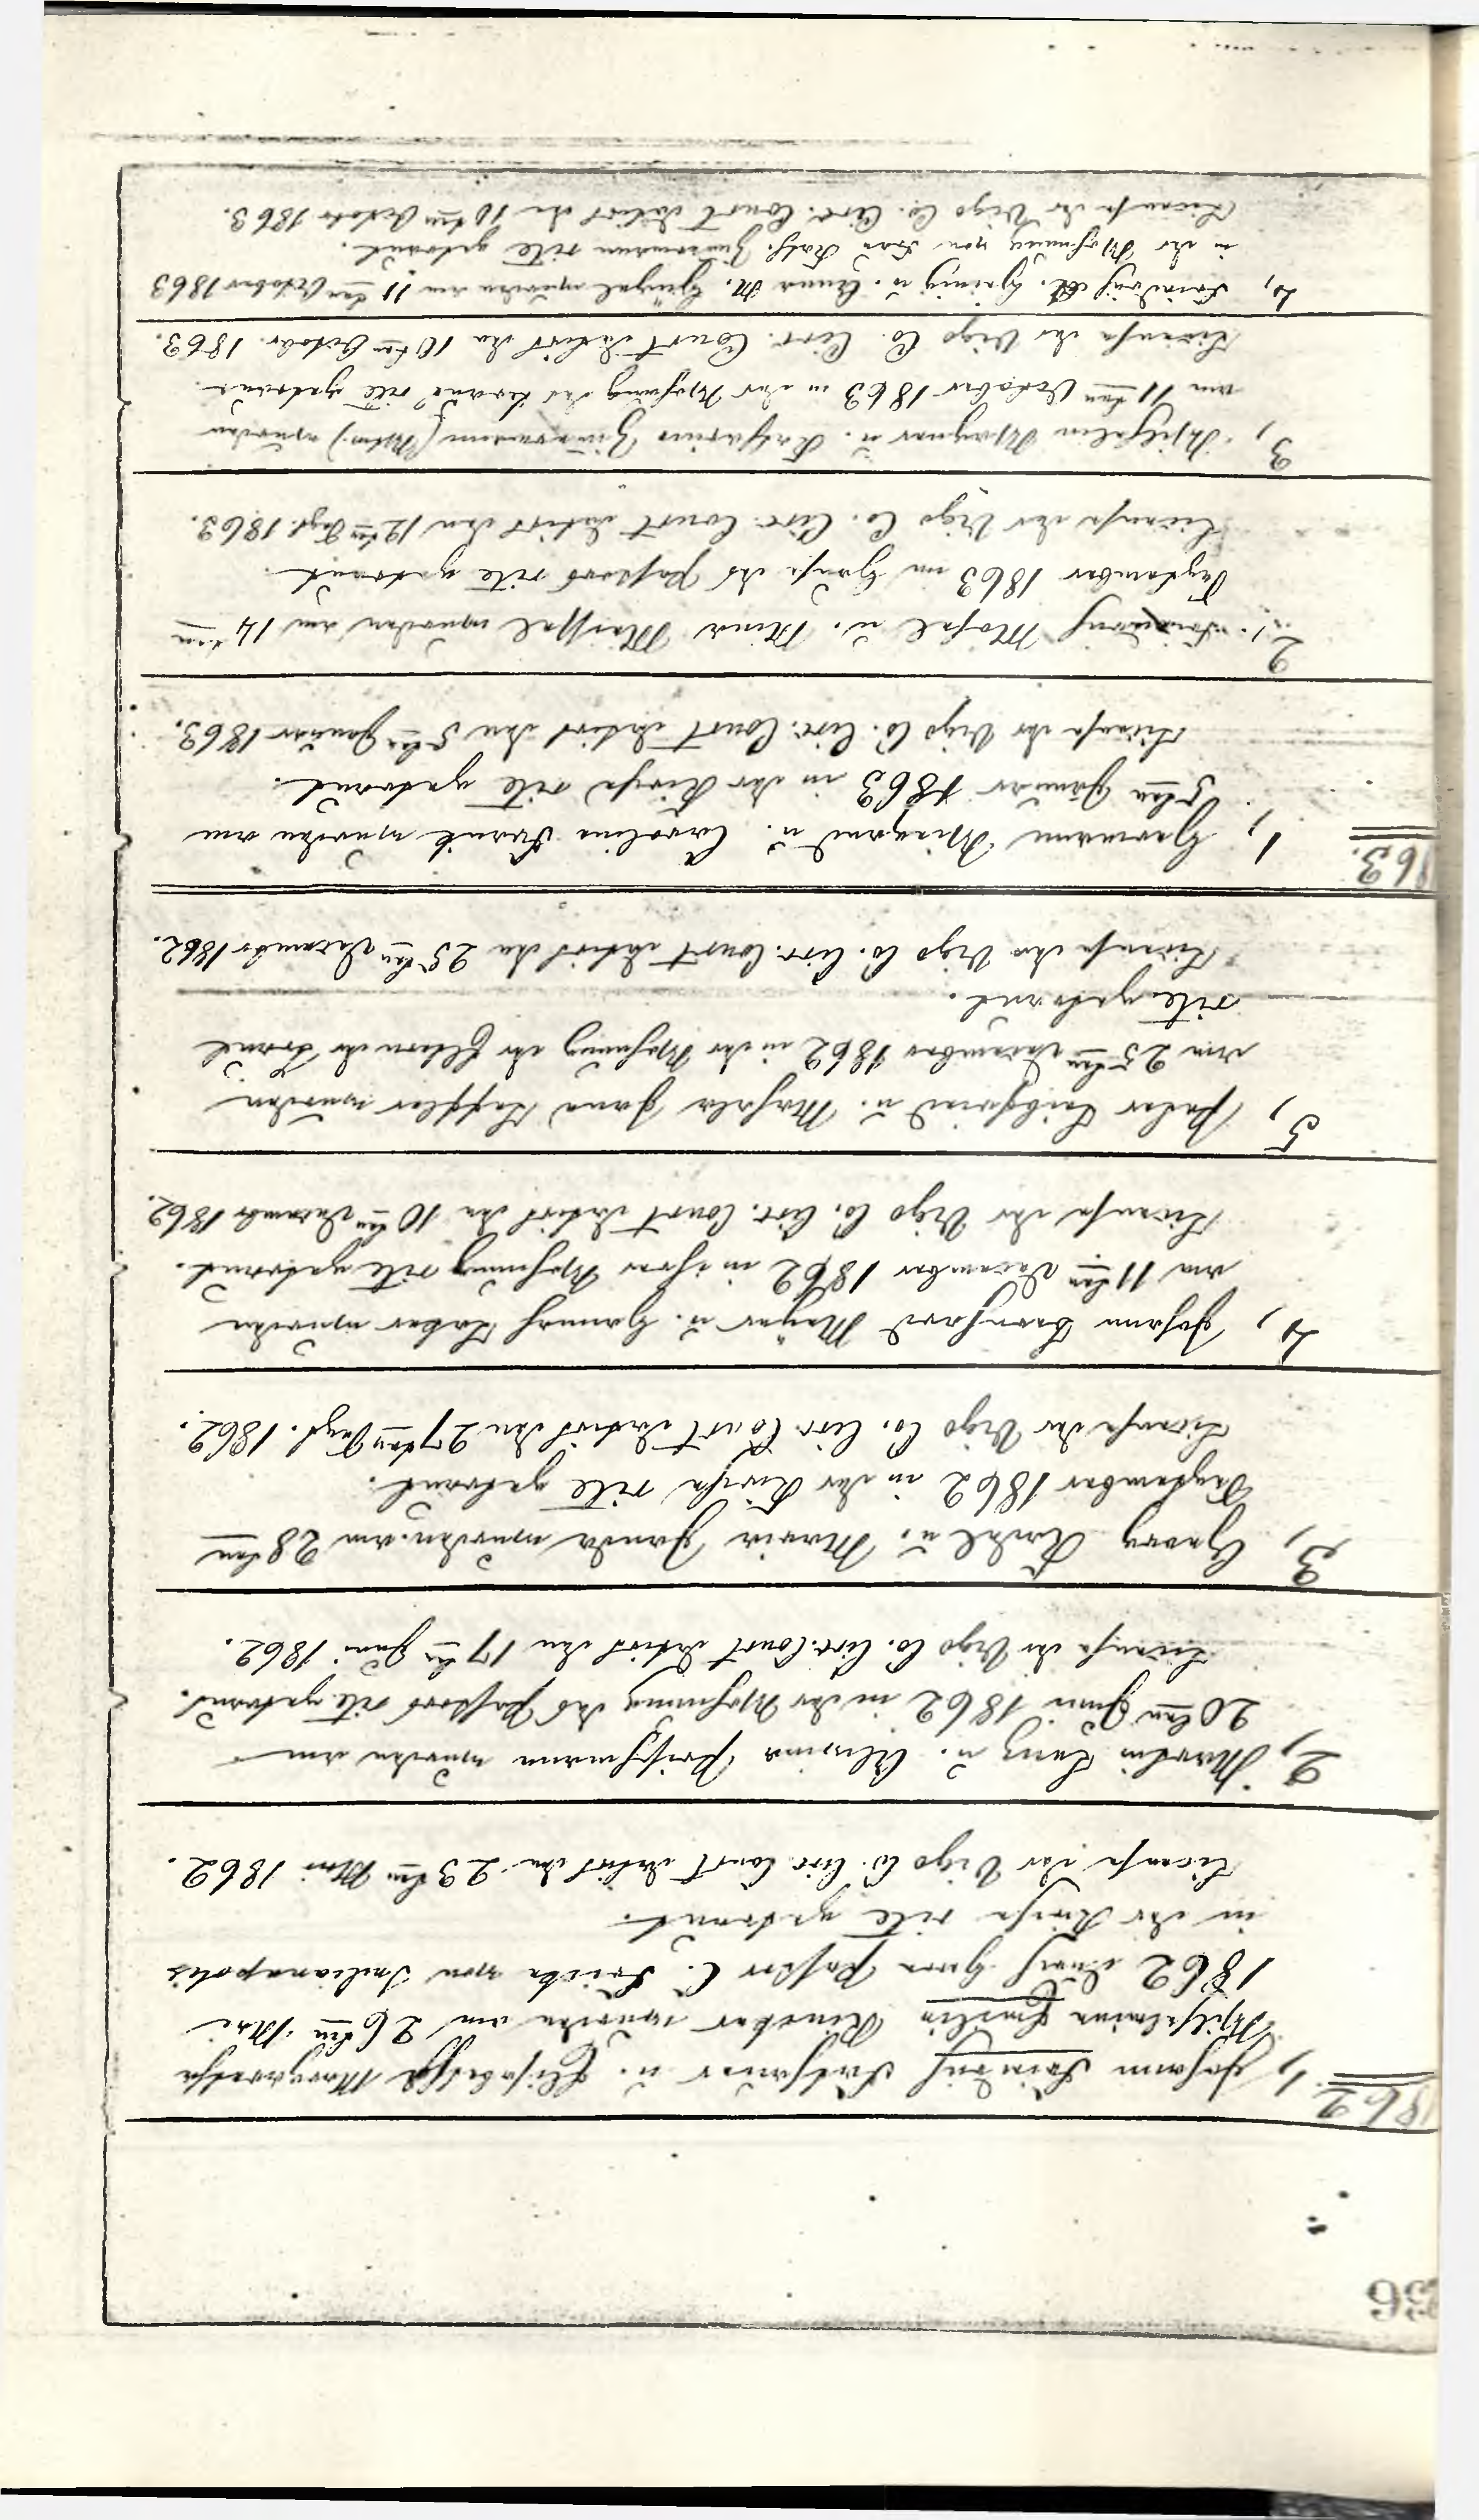 56
1862
1, Johann Heinrich u. Elisabeth Margaretha
Wilhelmine Emilie wurden am 26ten Mai
1862 durch Herrn Pastor C. Fricke von Indianapolis
in der Kirche rite getraut.
License der Vigo Co. Circ. Court datirt den 23ten Mai 1862.
2, Martin Lang u. wurden am
20ten Juni 1862 in der Wohnung des Pastors rite getraut.
License der Vigo Co. Circ. Court datirt den 17ten Juni 1862.
3, Georg u. Maria wurden am 28ten
September 1862 in der Kirche rite getraut.
License der Vigo Co. Circ. Court datirt den 27ten Sept. 1862.
4, Johann Bernhard Meyer u. Hannah wurden
am 11ten December 1862 in ihrer Wohnung rite getraut.
License der Vigo Co. Circ. Court datirt den 10ten December 1862.
5, Peter u. Jane wurden
am 25ten December 1862 in der Wohnung der Eltern der Braut
rite getraut.
License der Vigo Co. Circ. Court datirt den 25ten December 1862.
1863.
1, Hermann Weyand u. Caroline Frank wurden am
5ten Januar 1863 in der Kirche rite getraut.
License der Vigo Co. Circ. Court datirt den 5ten Januar 1863.
2, u. Mina wurden am 14ten
September 1863 im Hause des Pastors rite getraut.
License der Vigo Co. Circ. Court datirt den 12ten Sept. 1863.
3, Wilhelm Wagner u. Katharine Zimmermann (Wtw.) wurden
am 11ten October 1863 in der Wohnung der Braut rite getraut.
License der Vigo Co. Circ. Court datirt den 10ten October 1863.
4, Friedrich u. Anna M. wurden am 11ten October 1863
in der Wohnung von Frau Kath. Zimmermann rite getraut.
License der Vigo Co. Circ. Court datirt den 10ten October 1863.